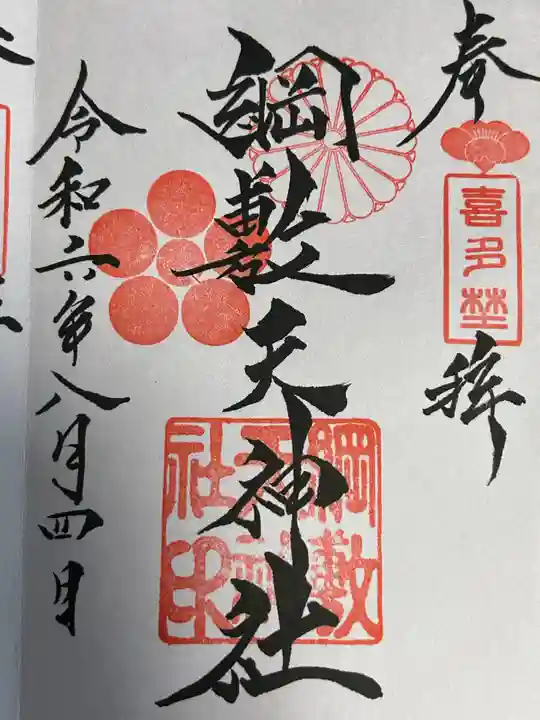 奉拝
喜多埜
綱敷天神社
綱敷天神社印
令和六年八月四日